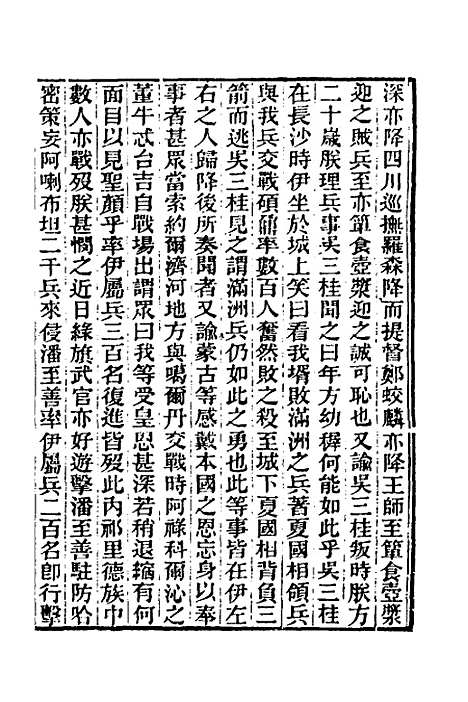 深亦降四川巡撫羅森降而提督鄭蛟麟亦降王師至簞食壺漿
迎之賊兵至亦簞食壺漿迎之誠可恥也又諭吳三桂叛時朕方
二十歲朕理兵事吳三桂聞之曰年方幼穉何能如此乎吳三桂
在長沙時伊坐於城上笑曰看我壻敗滿洲之兵著夏國相領兵
與我兵交戰碩鼐率數百人奮然敗之殺至城下夏國相背負三
箭而逃吳三桂見之謂滿洲兵仍如此之勇也此等事皆在伊左
右之人歸降後所奏聞者又諭蒙古等感戴本國之恩忘身以奉
事者甚眾當索約爾濟河地方與噶爾丹交戰時阿祿科爾沁之
董牛忒台吉自戰場出謂眾曰我等受皇恩甚深若稍退縮有何
面目以見聖顏乎率伊屬兵三百名復進皆歿此內祁里德族中
數人亦戰歿朕甚憫之近日綠旗武官亦好遊擊潘至善駐防哈
密策妄阿喇布坦二千兵來侵潘至善率伊屬兵二百名卽行擊